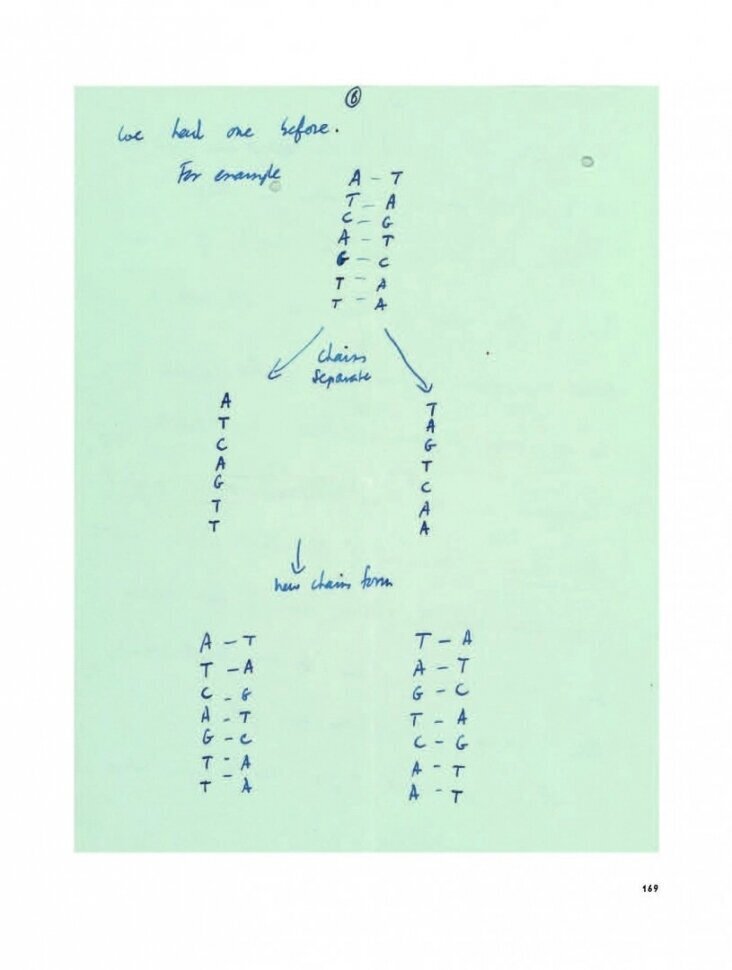 6
We had one before.
For example
A - T
T - A
C - G
A - T
G - C
T - A
T - A
Chains
separate
A
T
C
A
G
T
T
T
A
G
T
C
A
A
new chains form
A - T
T - A
C - G
A - T
G - C
T - A
T - A
T - A
A - T
G - C
T - A
C - G
A - T
A - T
169